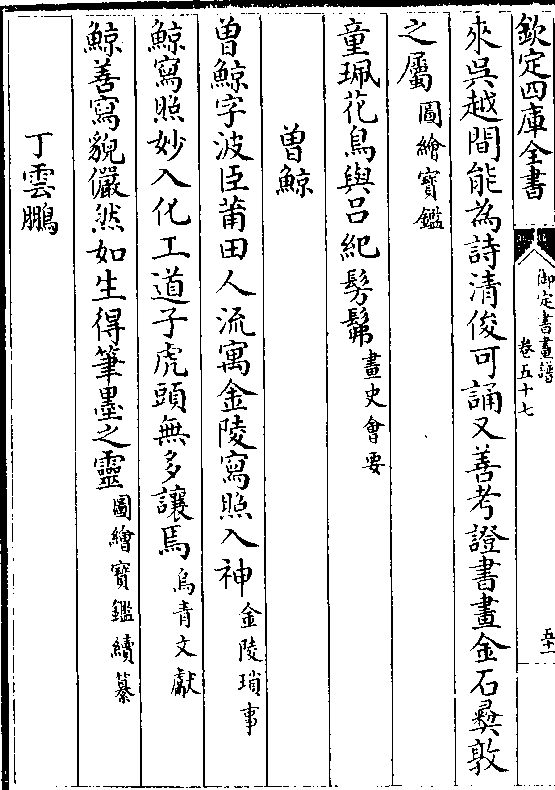 欽定四庫全書
御定書畫譜
卷五十七
五十一
來吳越間能為詩清俊可誦又善考證書畫金石彜敦
之屬圖繪寶鑑
童珮花鳥與呂紀髣髴畫史會要
曾鯨
曾鯨字波臣莆田人流寓金陵寫照入神金陵瑣事
鯨寫照妙入化工道子虎頭無多讓焉烏青文獻
鯨善寫貌儼然如生得筆墨之靈圖繪寶鑑續纂
丁雲鵬